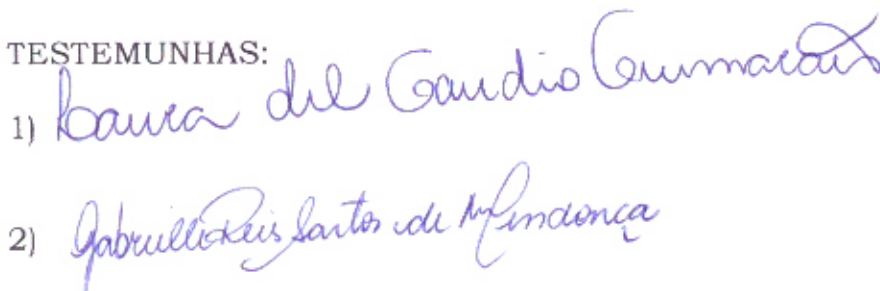 TESTEMUNHAS:
1) Laura del Gaudio Guimarães
2) Gabrielle Reis Santos de Mendonça